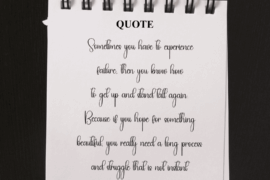 QUOTE
Sometimes you have to experience
failure, then you know how
to get up and stand tall again.
Because if you hope for something
beautiful, you really need a long process
and struggle that is not instant